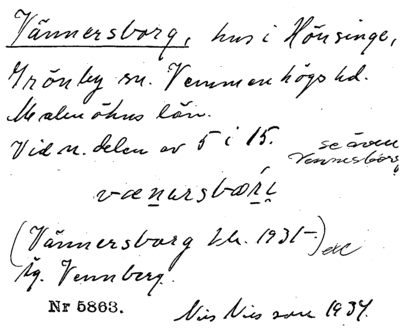 Vännersborg, hus i Hönsinge,
Grönby sn. Vemmenhögs hd.
Malmöhus län.
Vid n. delen av 5 i 15.
se även
Vennersborg
(Vännersborg 1931)
äg. Vennberg.
Nr 5863.
Nils Nilsson 1934.